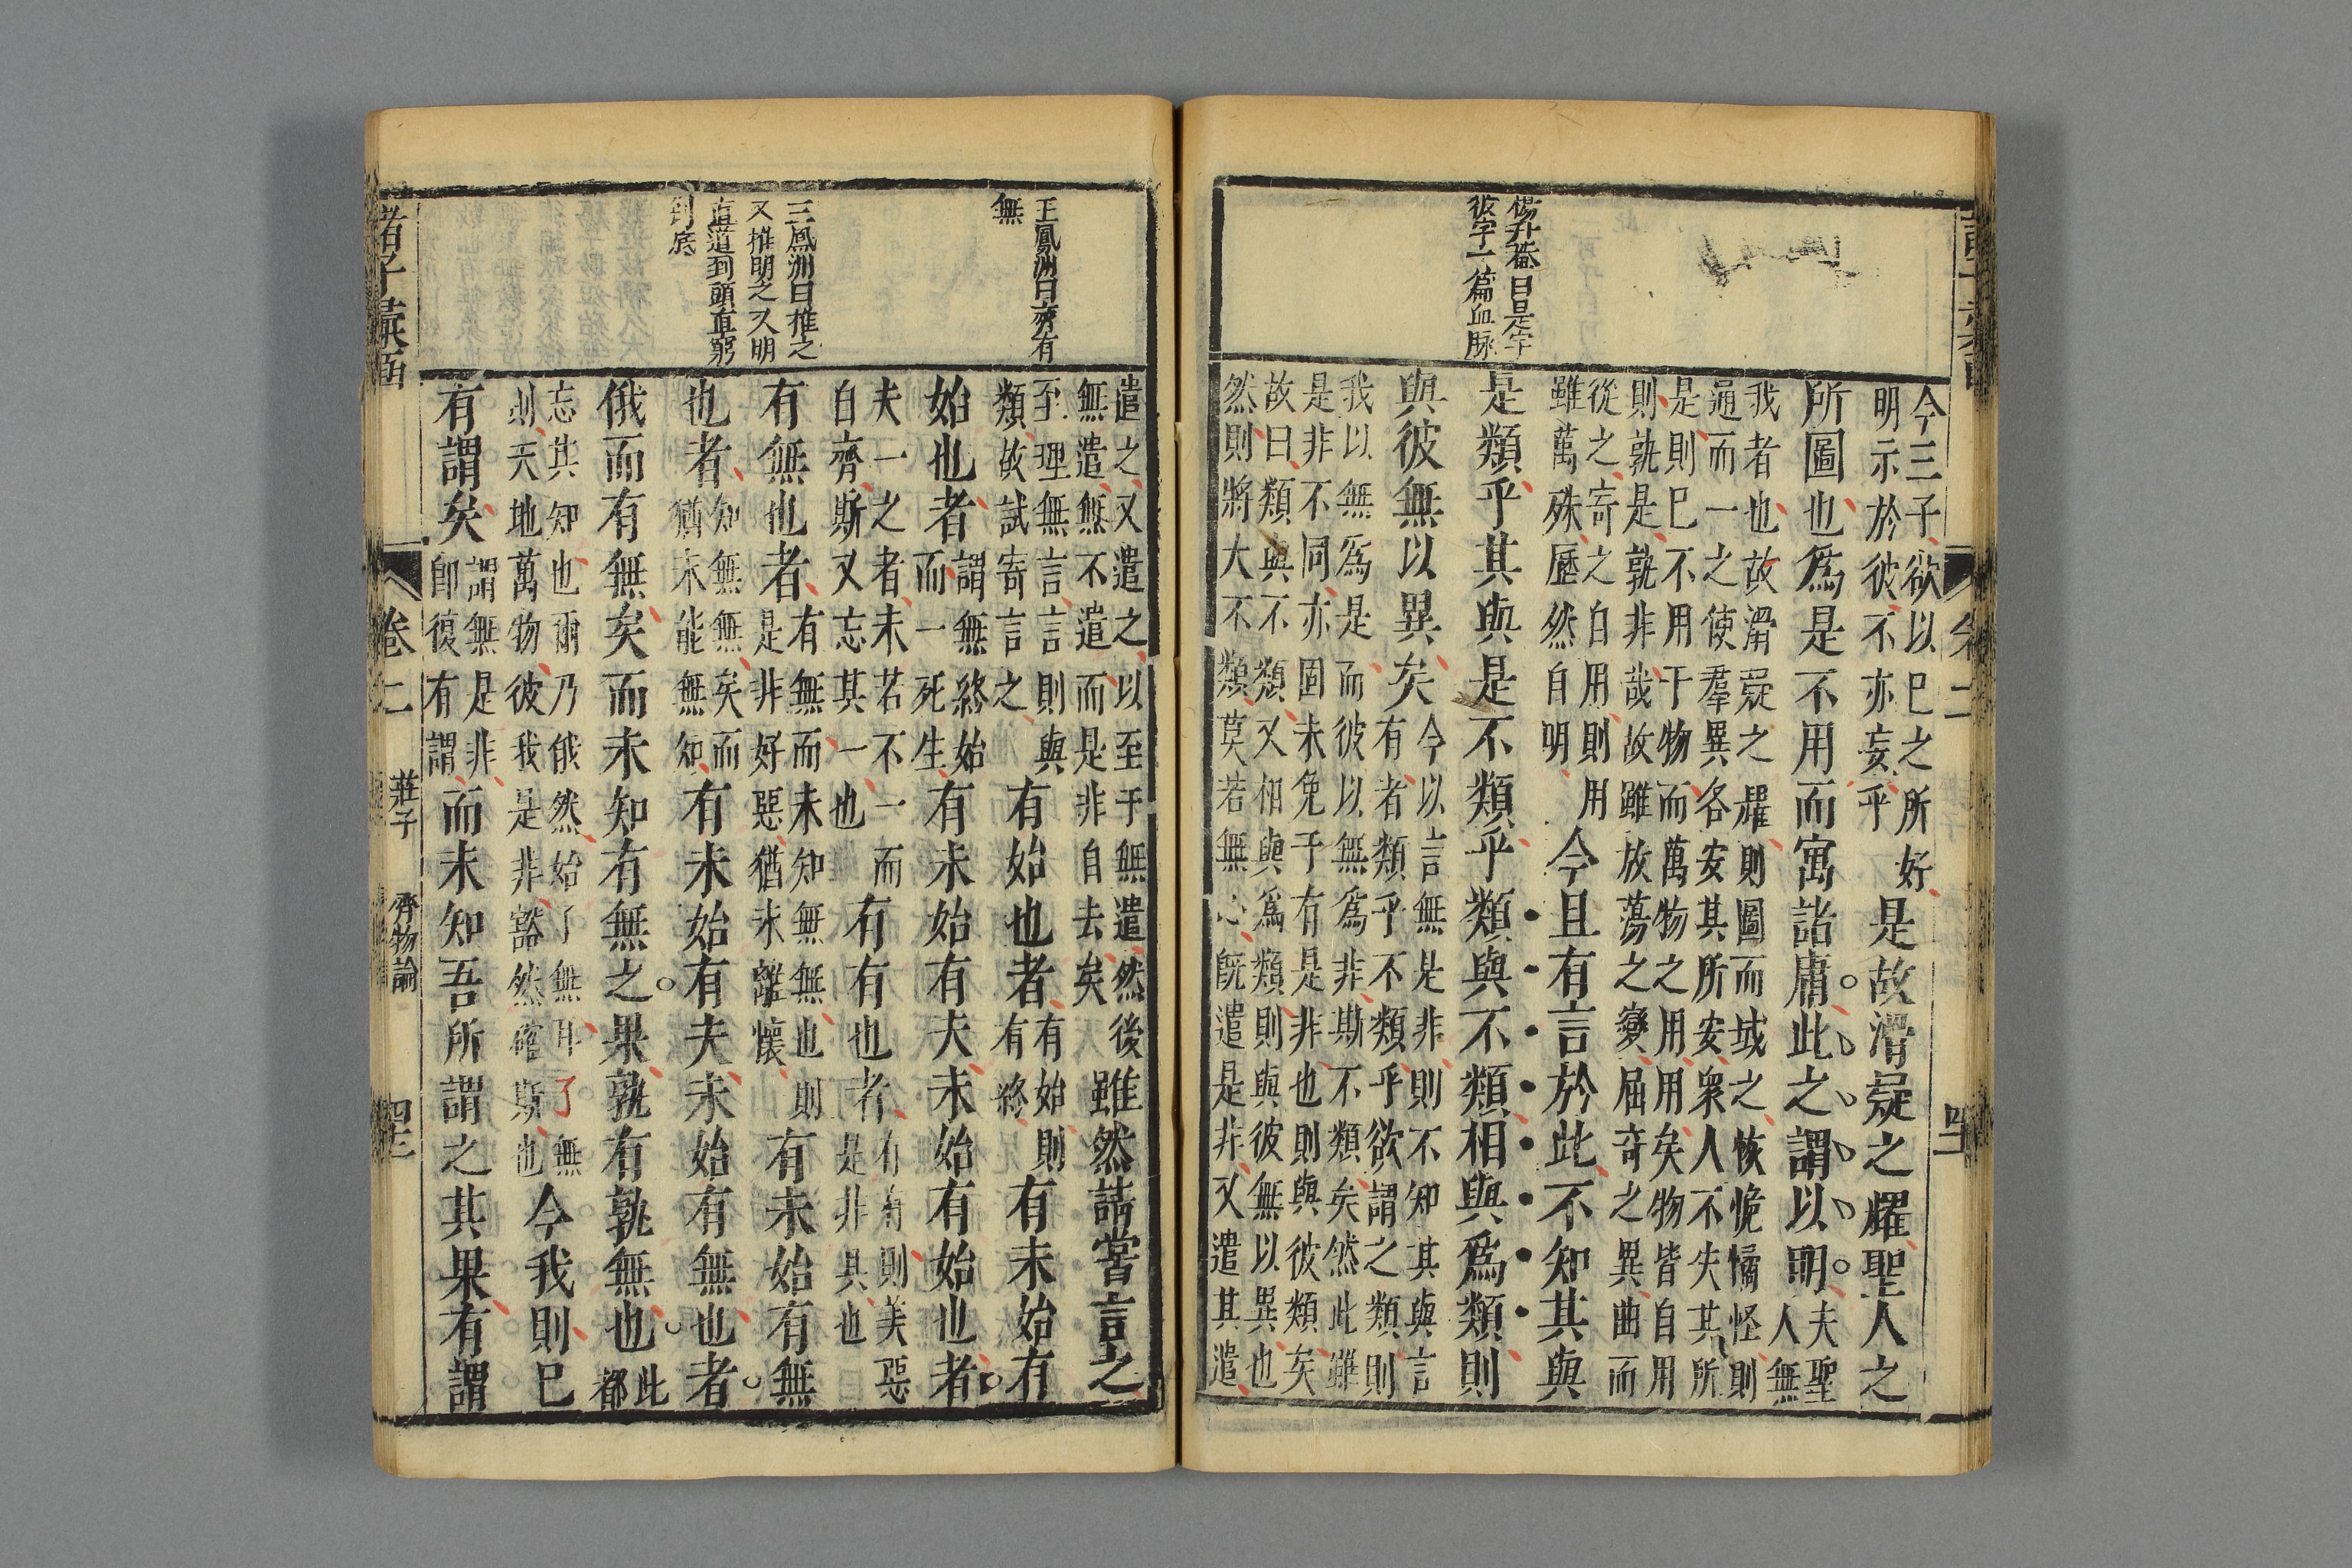 楊升菴曰是字
彼字一篇血脉
今三子欲以已之所好
明示於彼不亦妄乎
是故滑疑之耀聖人之
所圖也爲是不用而寓諸庸此之謂以明
夫聖
人無
我者也故滑疑之耀則圖而域之恢恑憰怪則
通而一之使羣異各安其所安衆人不失其所
是則已不用于物而萬物之用用矣物皆自用
則孰是孰非哉故雖放蕩之變屈奇之異曲而
從之寄之自用則用
雖萬殊歷然自明
今且有言於此不知其與
是類乎其與是不類乎類與不類相與爲類則
與彼無以異矣
今以言無是非則不知其與言
有者類乎不類乎欲謂之類則
我以無爲是而彼以無爲非斯不類矣然此雖
是非不同亦固未免于有是非也則與彼類矣
故曰類與不類又相與爲類則與彼無以異也
然則將大不類莫若無心既遣是非又遣其遣
王鳳洲曰齊有
無
王鳳洲曰推之
又推明之又明
直道到頭直窮
到底
遣之又遣之以至于無遣然後
無遣無不遣而是非自去矣
雖然請嘗言之
至理無言言則與
類故試寄言之
有始也者
有始則
有終
有未始有
始也者
謂無終始
而一死生
有未始有夫未始有始也者
夫一之者未若不一而
自齊斯又忘其一也
有有也者
有有則美惡
是非具也
有無也者
有無而未知無無也則
是非好惡猶未離懷
有未始有無
也者
知無無矣而
猶未能無知
有未始有夫未始有無也者
俄而有無矣而未知有無之果孰有孰無也
此
都
忘其知也爾乃俄然始了無耳了無
則天地萬物彼我是非豁然確斯也
今我則已
有謂矣
謂無是非
即復有謂
而未知吾所謂之其果有謂
諸子彙函
卷二
莊子
齊物論